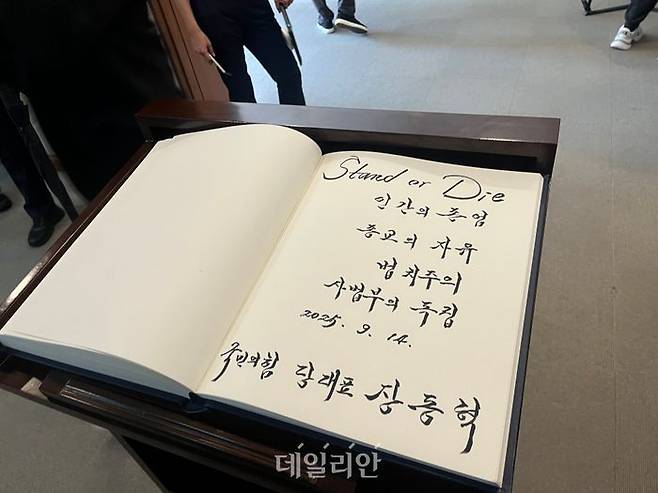 Stand or Die
인간의 존엄
종교의 자유
법치주의
사법부의 독립
2025. 9. 14.
국민의힘 당대표 장동혁
데일리안